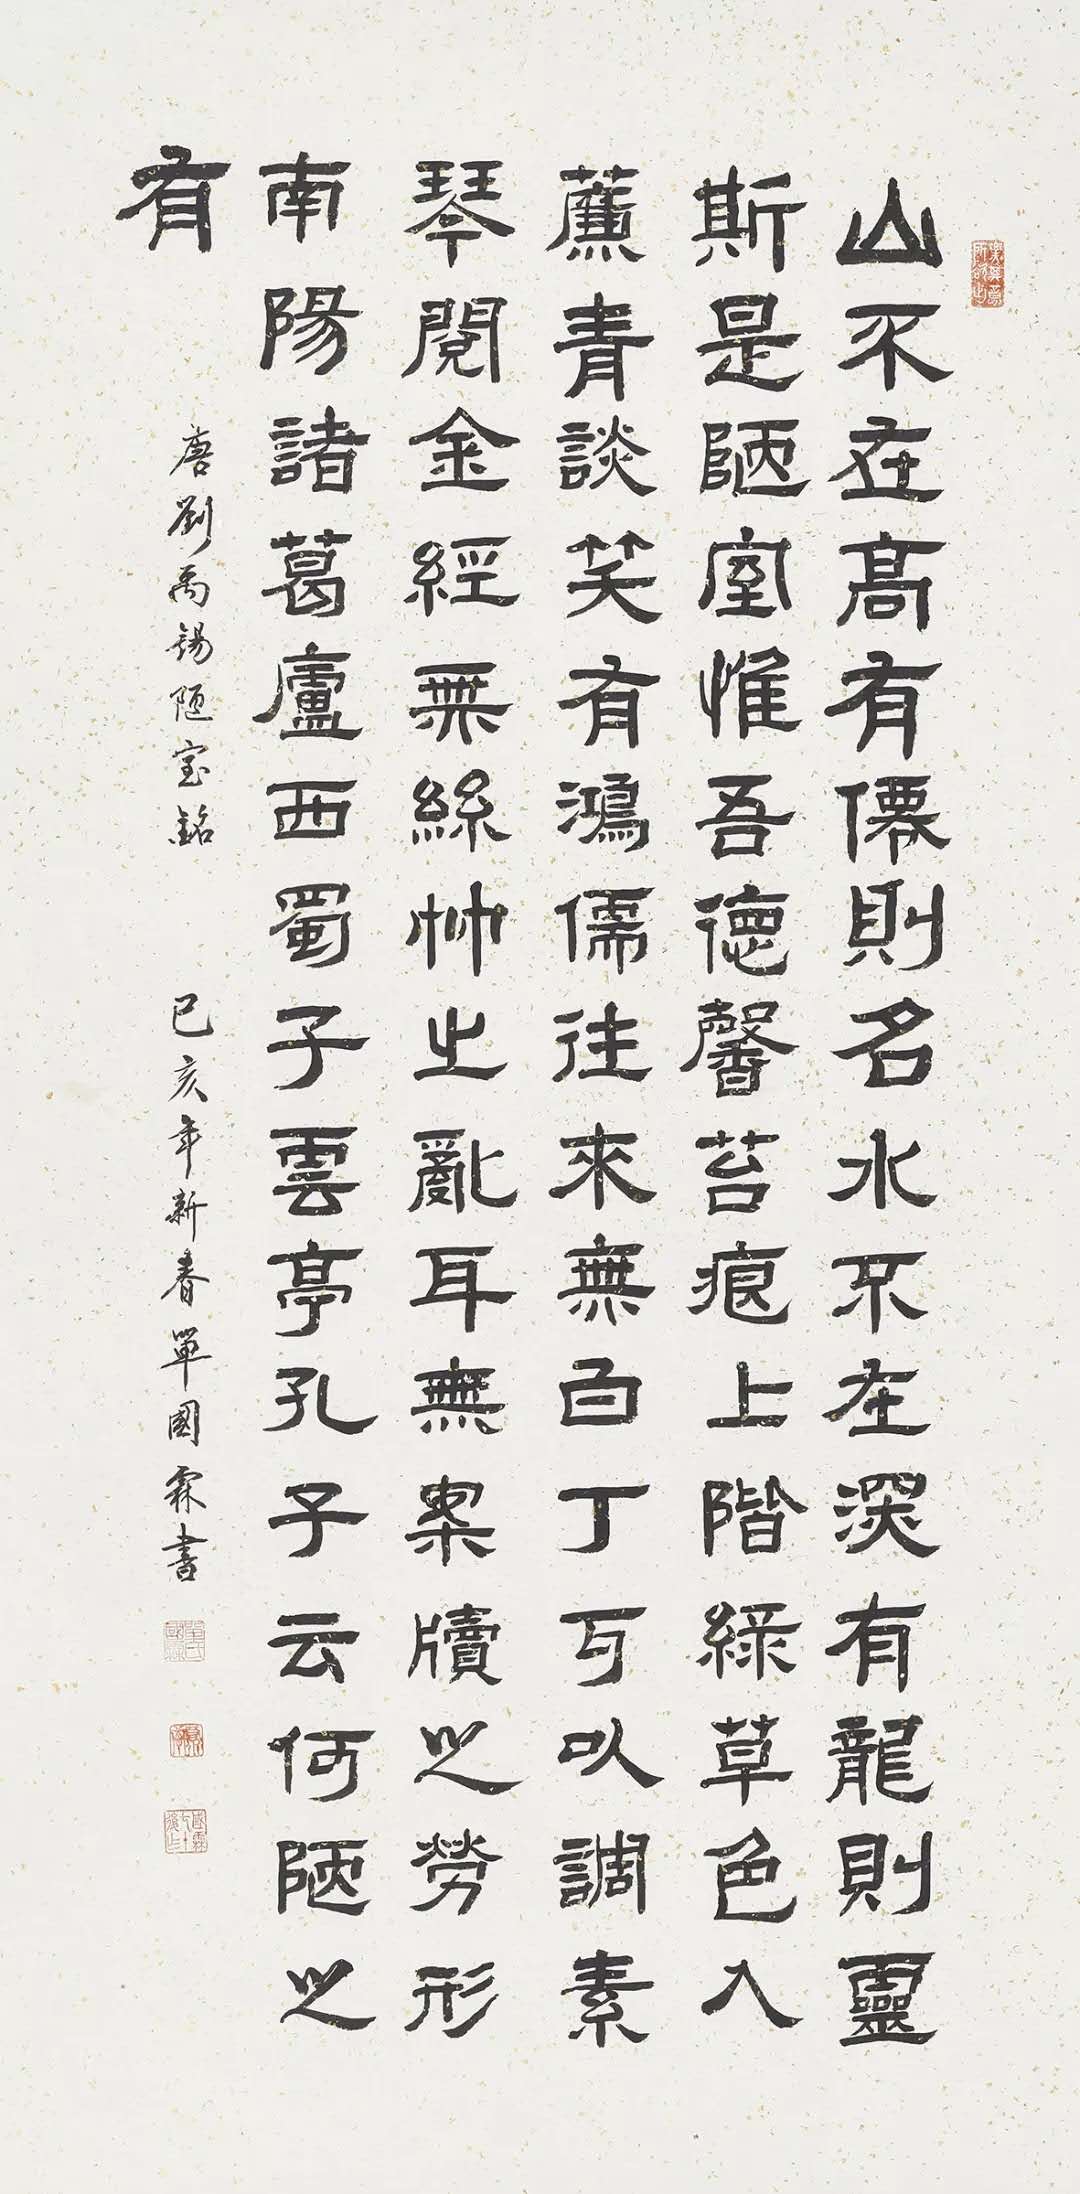 山不在高有僊則名水不在深有龍則靈
斯是陋室惟吾德馨苔痕上階綠草色入
薕青談笑有鴻儒往來無白丁可以調素
琴閱金經無絲竹之亂耳無案牘之勞形
南陽諸葛廬西蜀子雲亭孔子云何陋之
有
唐劉禹錫陋室銘 己亥年新春單國霖書